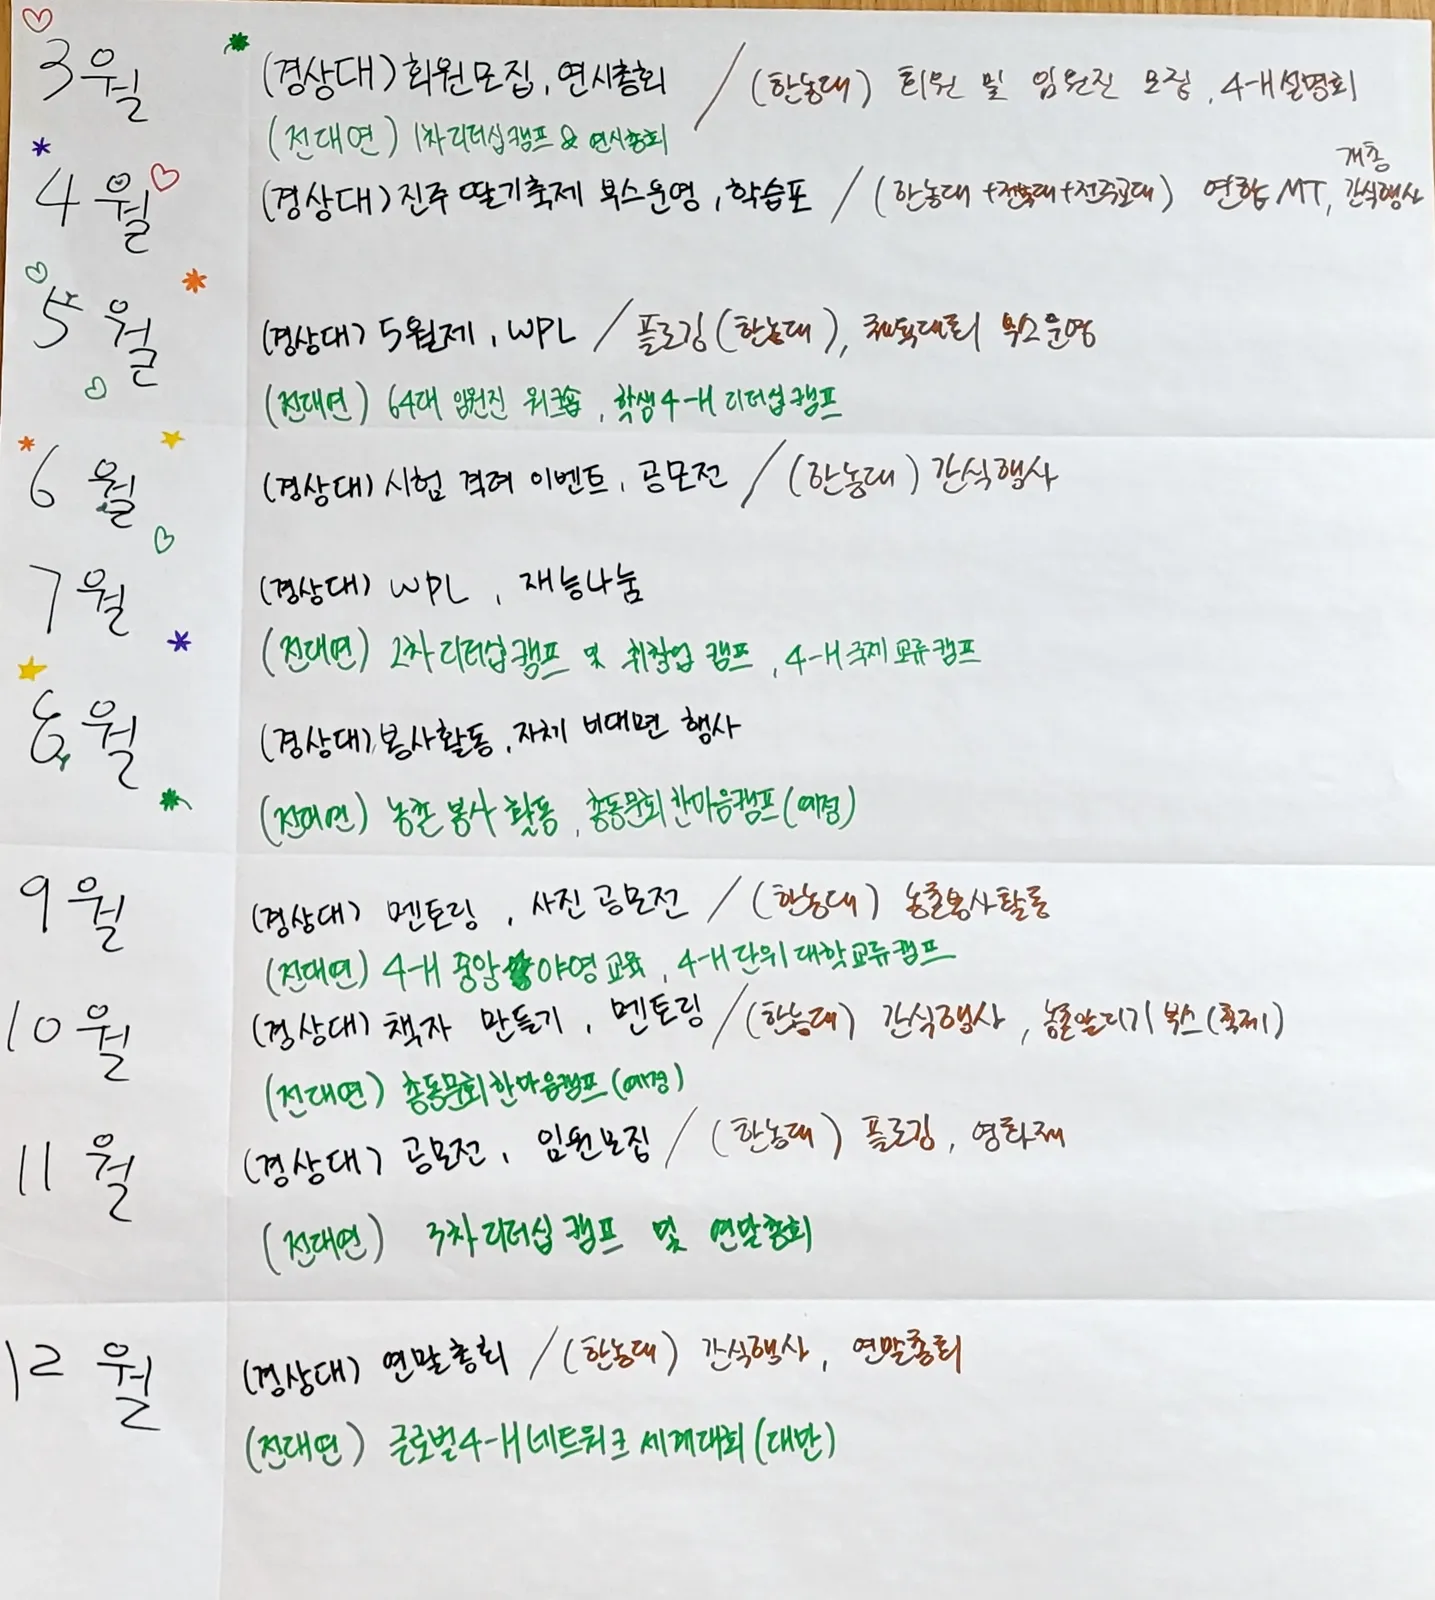 3월
(경상대) 회원모집, 연시총회 / (한농대) 회원 및 임원진 모집, 4-H설명회
(전대연) 1차 리더십캠프 & 연시총회
4월
개총
(경상대) 진주 딸기축제 부스운영, 학습포 / (한농대+전북대+전주교대) 연합 MT, 간식행사
5월
(경상대) 5월제, WPL / 플로깅 (한농대), 체육대회 부스운영
(전대연) 64대 임원진 워크숍, 학생4-H 리더십캠프
6월
(경상대) 시험 격려 이벤트, 공모전 / (한농대) 간식행사
7월
(경상대) WPL, 재능나눔
(전대연) 2차 리더십캠프 및 취창업 캠프, 4-H국제교류캠프
8월
(경상대) 봉사활동, 자체 비대면 행사
(전대연) 농촌봉사활동, 총동문회한마음캠프(예정)
9월
(경상대) 멘토링, 사진공모전 / (한농대) 농촌봉사활동
(전대연) 4-H 중앙 야영교육, 4-H단위대학교류캠프
10월
(경상대) 책자 만들기, 멘토링 / (한농대) 간식행사, 농촌알리기 부스(축제)
(전대연) 총동문회한마음캠프(예정)
11월
(경상대) 공모전, 임원모집 / (한농대) 플로깅, 영화제
(전대연) 3차리더십캠프 및 연말총회
12월
(경상대) 연말총회 / (한농대) 간식행사, 연말총회
(전대연) 글로벌4-H네트워크 세계대회(대만)